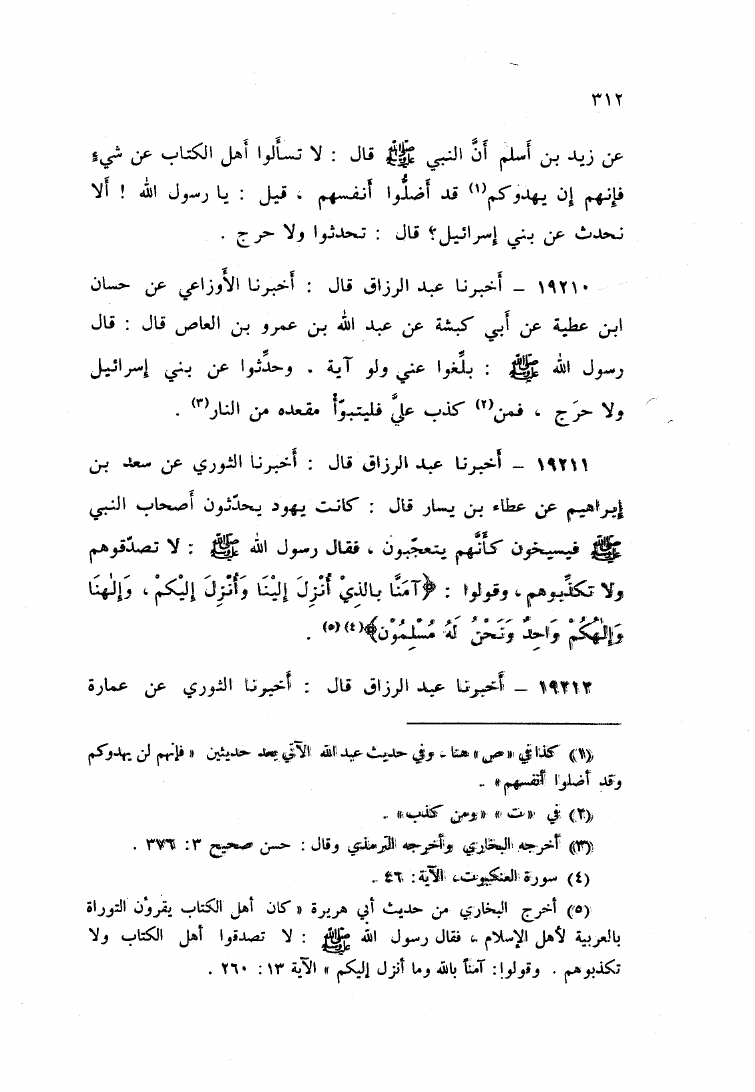 ٣١٢
عن زيد بن أسلم أنَّ النبي ﷺ قال : لا تسألوا أهل الكتاب عن شيءٍ
فإنهم إن يهدوكم(١) قد أضلُّوا أنفسهم ، قيل : يا رسول الله ! ألا
نحدث عن بني إسرائيل؟ قال : تحدثوا ولا حرج .
١٩٢١٠ – أخبرنا عبد الرزاق قال : أخبرنا الأوزاعي عن حسان
ابن عطية عن أبي كبشة عن عبد الله بن عمرو بن العاص قال : قال
رسول الله ﷺ : بلِّغوا عني ولو آية . وحدِّثوا عن بني إسرائيل
ولا حرَج ، فمن(٢) كذب عليَّ فليتبوّأْ مقعده من النار(٣) .
١٩٢١١ – أخبرنا عبد الرزاق قال : أخبرنا الثوري عن سعد بن
إبراهيم عن عطاء بن يسار قال : كانت يهود يحدّثون أصحاب النبي
ﷺ فيسيخون كأنَّهم يتعجّبون ، فقال رسول الله ﷺ : لا تصدّقوهم
ولا تكذِّبوهم ، وقولوا : ﴿آمَنَّا بِالذِيْ أُنْزِلَ إِلَيْنَا وَأُنْزِلَ إِلَيكُمْ ، وَإِلٰهُنَا
وَإِلٰهُكُمْ وَاحِدٌ وَنَحْنُ لَهُ مُسْلِمُوْن﴾(٤)(٥) .
١٩٢١٢ – أخبرنا عبد الرزاق قال : أخبرنا الثوري عن عمارة
(١) كذا في «ص» هنا ، وفي حديث عبد الله الآتي بعد حديثين «فإنهم لن يهدوكم
وقد أضلوا أنفسهم» .
(٢) في «ت» «ومن كذب» .
(٣) أخرجه البخاري وأخرجه الترمذي وقال : حسن صحيح ٣: ٣٧٦ .
(٤) سورة العنكبوت، الآية: ٤٦ .
(٥) أخرج البخاري من حديث أبي هريرة «كان أهل الكتاب يقرؤن التوراة
بالعربية لأهل الإسلام ، فقال رسول الله ﷺ : لا تصدقوا أهل الكتاب ولا
تكذبوهم . وقولوا: آمناً بالله وما أنزل إليكم» الآية ١٣: ٢٦٠ .